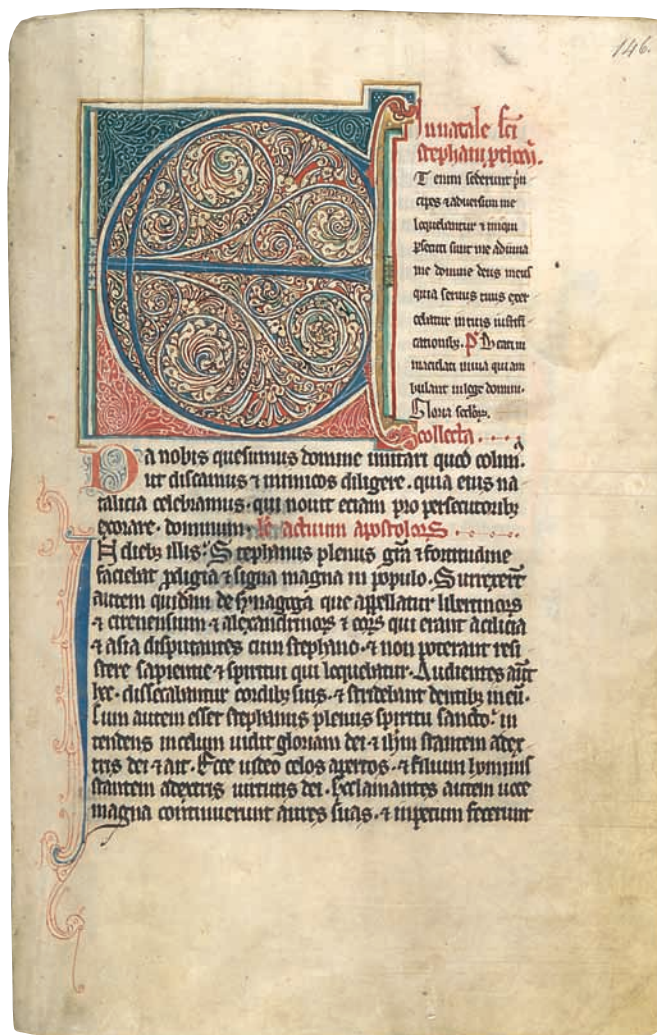 146.
In natale sc̄i
stephani
E
T enim sederunt p̄n
cipes ⁊ aduersum me
loquebantur ⁊ iniqui
ꝑsecuti sunt me adiuua
me domine deus meus
quia seruus tuus exer
cebatur in tuis iustifi
cationibꝫ. P̄s Beati in
maculati in uia qui am
bulant in lege domini.
Gloria
collecta
Da nobis quesumus domine imitari quod colim᷒.
ut discamus ⁊ inimicos diligere. quia eius na
talicia celebramus. qui nouit eciam pro persecutoribꝫ
exorare. dominum. Lc̄ actuum apostoloꝝ
In diebꝫ illis. Stephanus plenus gr̄a ⁊ fortitudine
faciebat ꝓdigia ⁊ signa magna in populo. Surrexer̄t
autem quidam de synagoga que appellatur libertinoꝝ
⁊ cirenensium ⁊ alexandrinoꝝ ⁊ eoꝝ qui erant acilicia
⁊ asia disputantes cum stephano. ⁊ non poterant resi
stere sapientie ⁊ spiritui qui loquebatur. Audientes aūt
hec. dissecabantur cordibꝫ suis. ⁊ stridebant dentibꝫ in eū.
Cum autem esset stephanus plenus spiritu sancto. in
tendens in celum uidit gloriam dei ⁊ ih̄m stantem adex
tris dei ⁊ ait. Ecce uideo celos apertos. ⁊ filium hominis
stantem adextris uirtutis dei. Exclamantes autem uoce
magna continuerunt aures suas. ⁊ impetum fecerunt